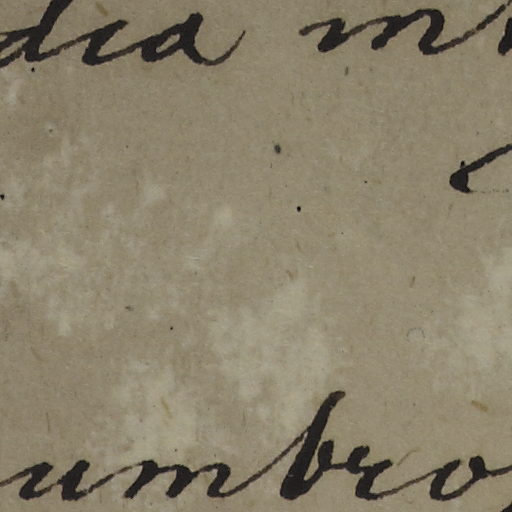 dia in
umbro